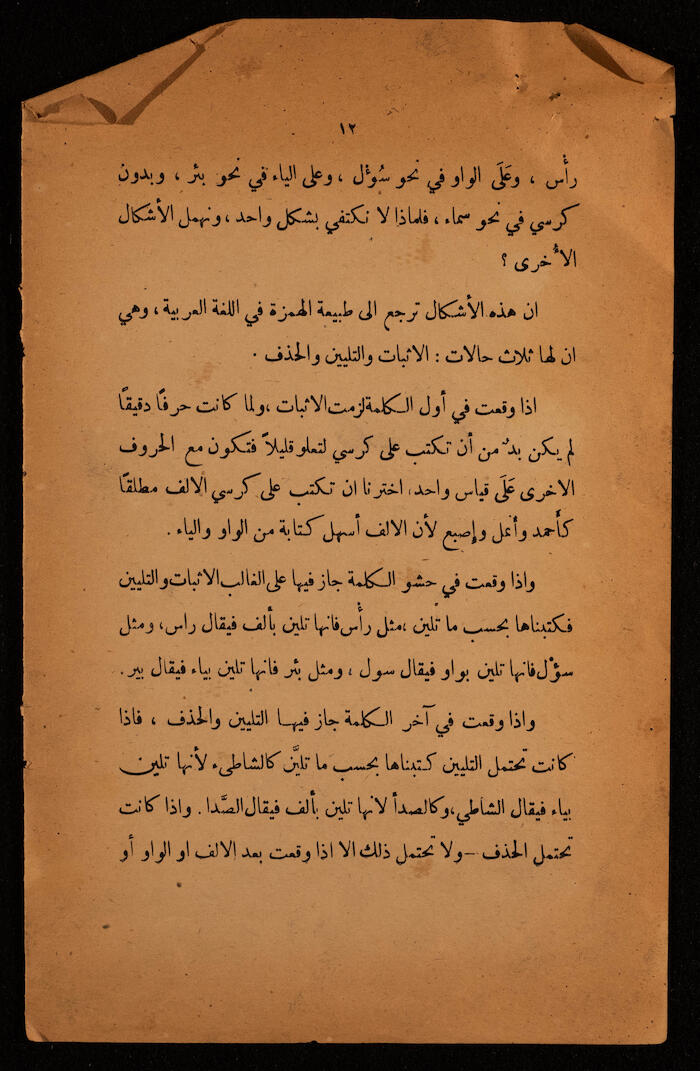 ١٢
رأْس ، وعَلَى الواو في نحو سُوءْل ، وعلى الياء في نحو بئر ، وبدون
كرسي في نحو سماء ، فلماذا لا نكتفي بشكل واحد ، ونهمل الأشكال
الأُخرى ؟
ان هذه الأشكال ترجع الى طبيعة الهمزة في اللغة العربية ، وهي
ان لها ثلاث حالات : الاثبات والتليين والحذف .
اذا وقعت في أول الكلمة لزمت الاثبات ، ولما كانت حرفًا دقيقًا
لم يكن بدٌّ من أن تكتب على كرسي لتعلو قليلاً فتكون مع الحروف
الاخرى عَلَى قياس واحد، اخترنا ان تكتب على كرسي الالف مطلقًا
كأَحمد وأنمل وإِصبع لأن الالف أسهل كتابة من الواو والياء .
واذا وقعت في حشو الكلمة جاز فيها على الغالب الاثبات والتليين
فكتبناها بحسب ما تلين ، مثل رأْس فانها تلين بألف فيقال راس ، ومثل
سؤْل فانها تلين بواو فيقال سول ، ومثل بئر فانها تلين بياء فيقال بير .
واذا وقعت في آخر الكلمة جاز فيها التليين والحذف ، فاذا
كانت تحتمل التليين كتبناها بحسب ما تليَّن كالشاطىء لأنها تلين
بياء فيقال الشاطي ، وكالصدأ لانها تلين بألف فيقال الصَّدا . واذا كانت
تحتمل الحذف – ولا تحتمل ذلك الا اذا وقعت بعد الالف او الواو أو